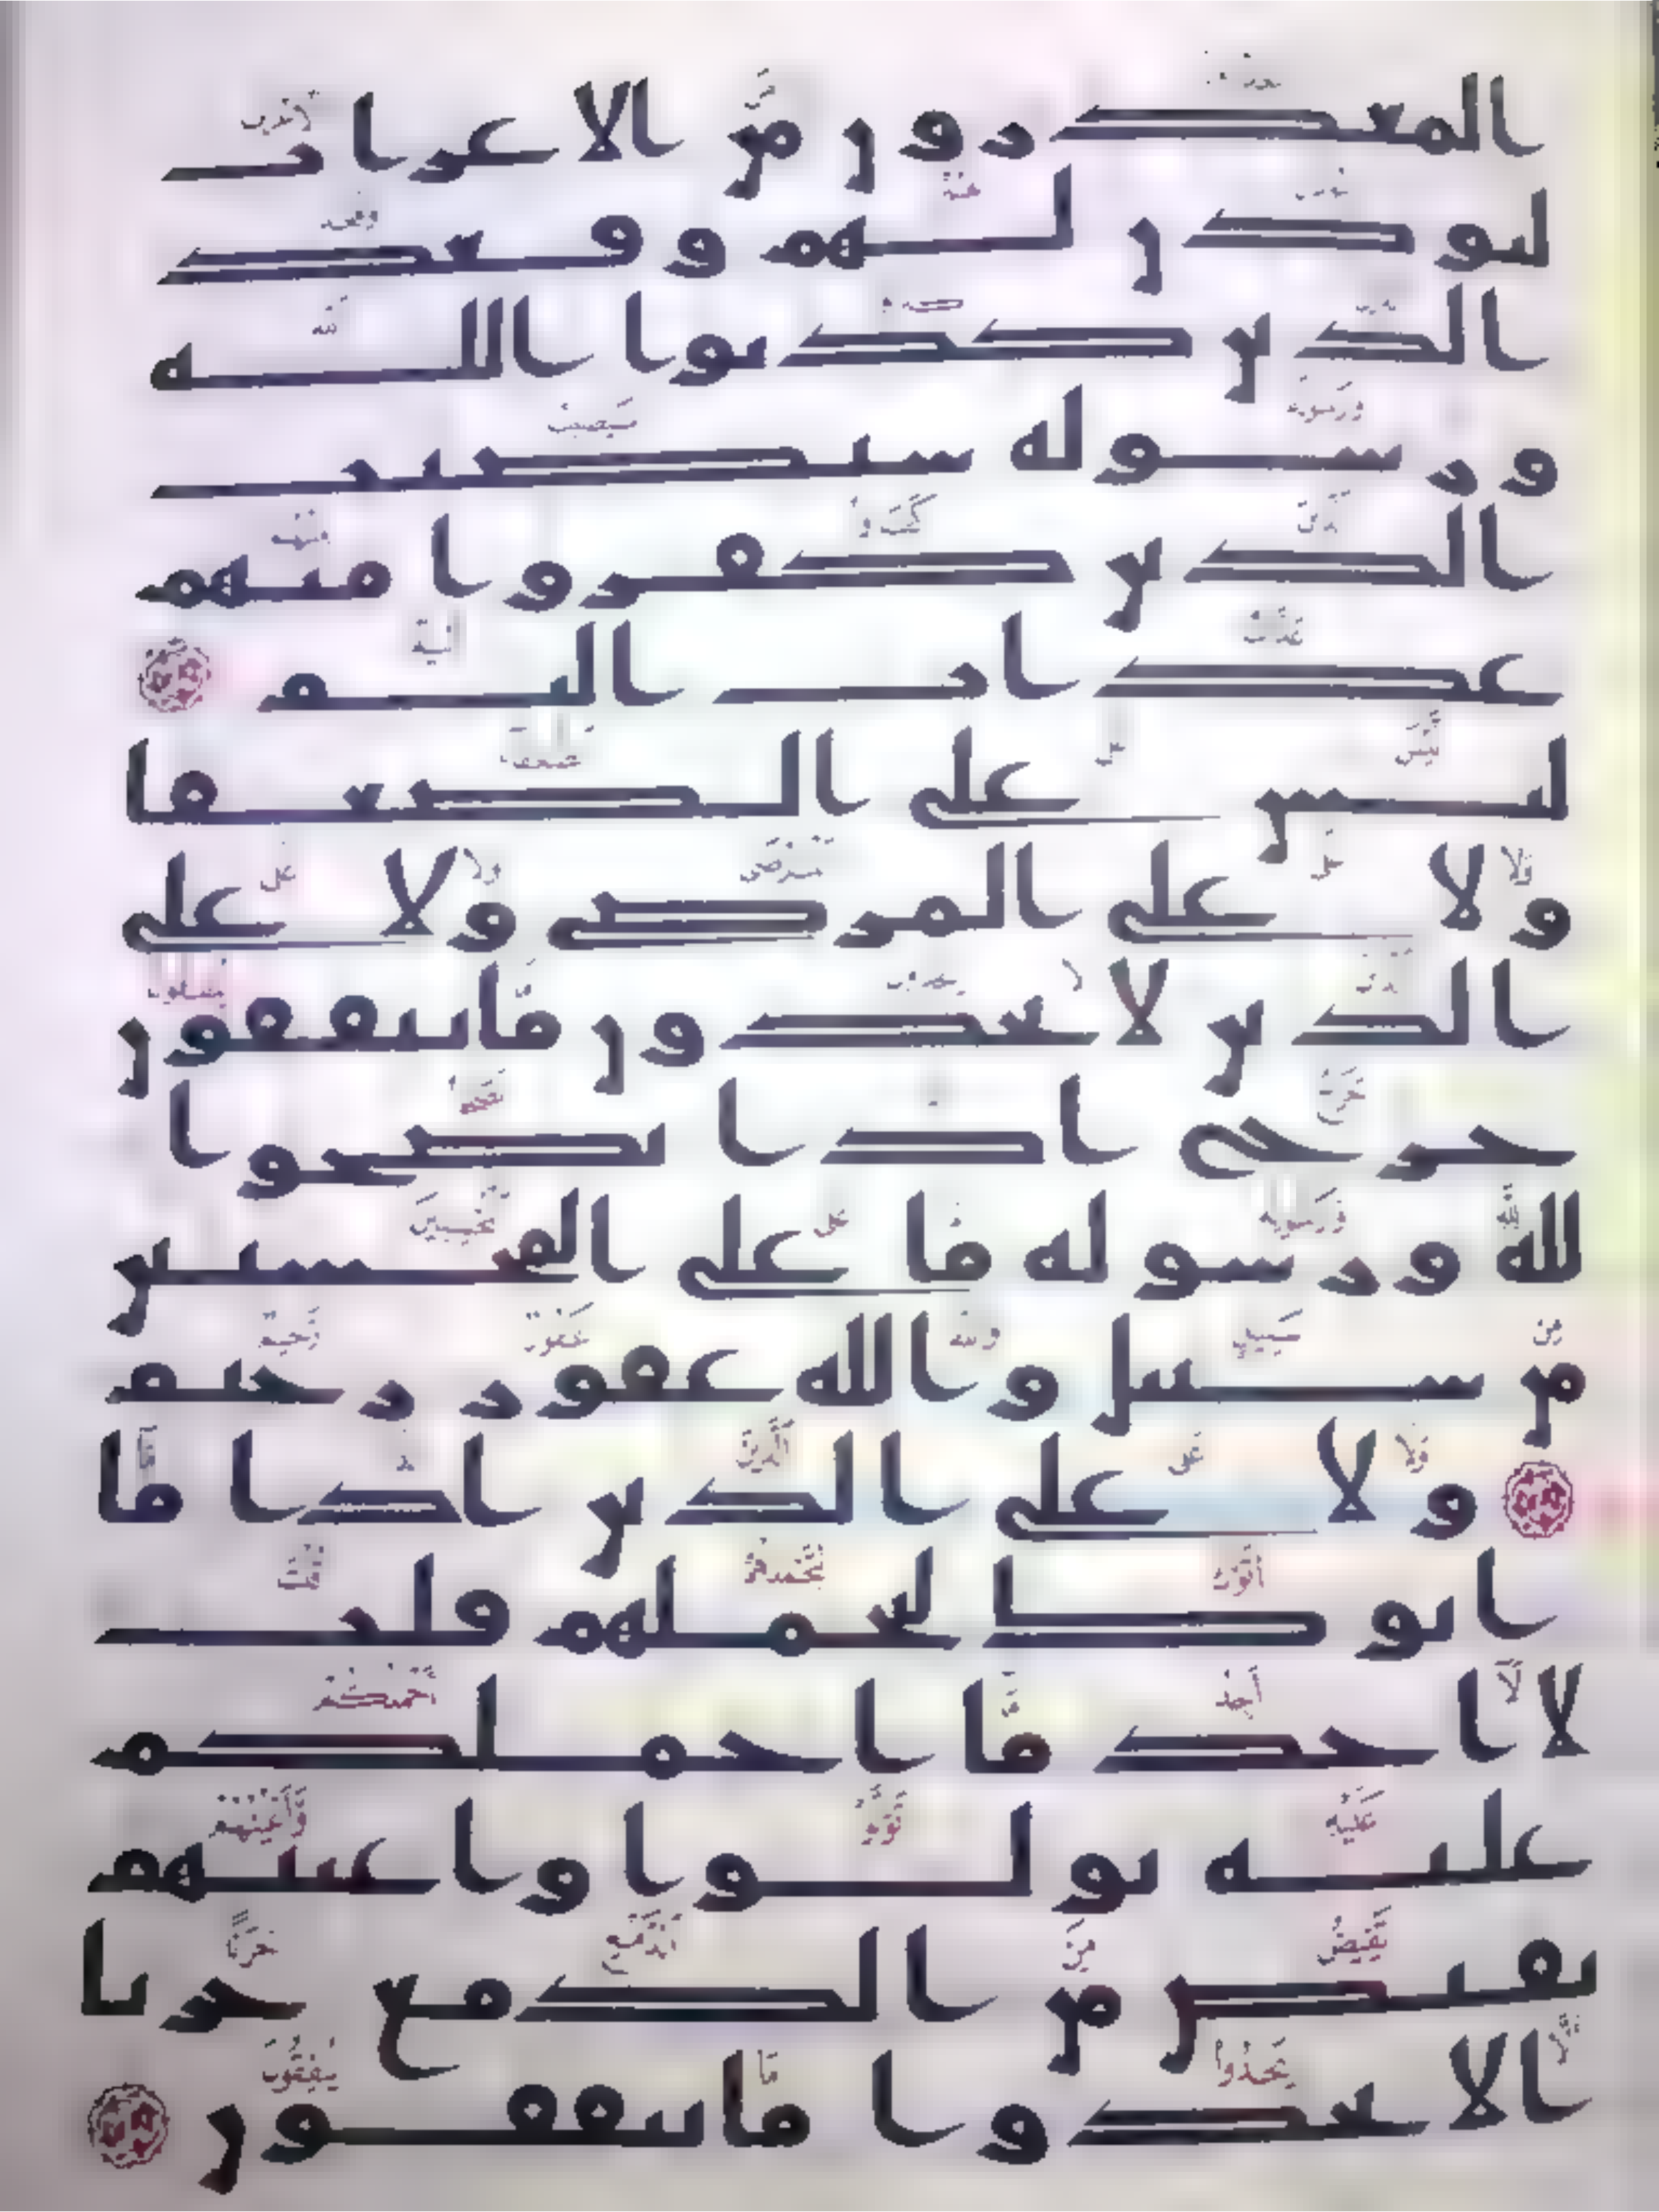 المعذرون من الاعراب
ليوذن لهم وقعد
الذين كذبوا الله
ورسوله سيصيب
الذين كفروا منهم
عذاب اليم
ليس على الضعفا
ولا على المرضى ولا على
الذين لا يجدون ما ينفقون
حرج اذا نصحوا
لله ورسوله ما على المحسنين
من سبيل والله غفور رحيم
ولا على الذين اذا ما
اتوك لتحملهم قلت
لا اجد ما احملكم
عليه تولوا واعينهم
تفيض من الدمع حزنا
الا يجدوا ما ينفقون